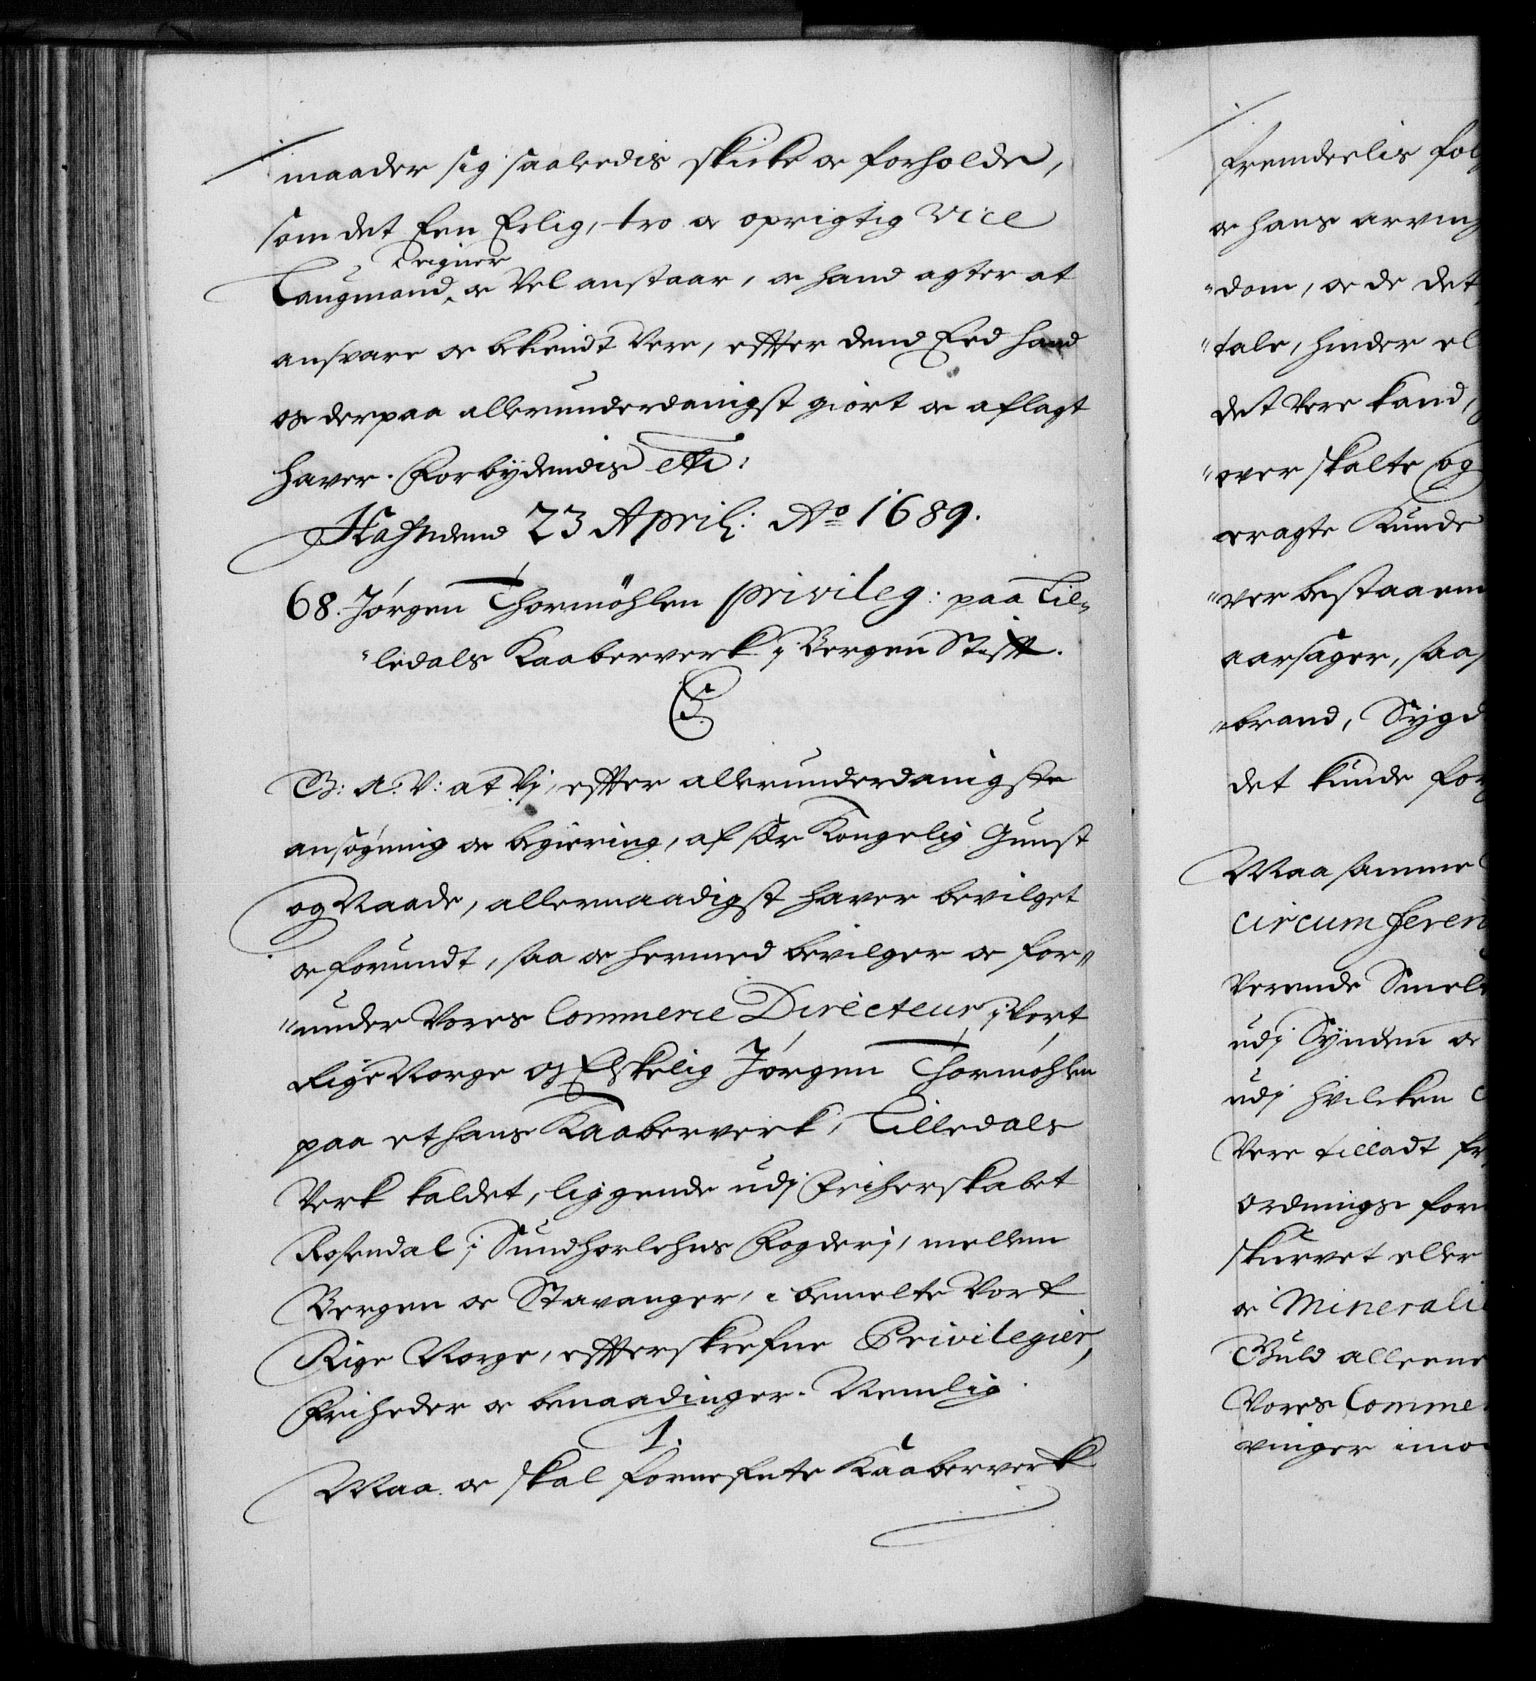 maader sig saaledis skicke oc forholde,
som det Een Erlig, tro oc oprigtig Vice
eigner
Laugmand oc Vel anstaar, oc hand agter at
ansvare oc bekiendt Vere, effter dend Eed hand
os derpaa allerunderdanigst giort oc aflagt
haver. Forbydendis etc:
Hafn dend 23 April: Ao 1689.
68. Jørgen Thormöhlen privileg: paa Lil„
„ledals Kaaberverk i Bergen Stifft.
G: A: V: at Vj, effter allerunderdanigste
ansøgning oc begiering, af sær Kongelig Gunst
og Naade, allernaadigst haver bevilget
oc forundt, saa oc hermed bevilger oc for„
„under Vores Commerie Directeur i Vort
Rige Norge os Elskelig Jørgen Thormøhlen
paa et hans Kaaberverk, Lilledals
Verk kaldet, liggende udj Friherskabet
Rosendal i Sundhorlehns Fogderj, mellem
Bergen oc Stavanger, i bemelte Vort
Rige Norge, effterskrefne Privilegier,
Friheder oc benaadinger. Nemlig.
1.
Maa oc skal fornefnte Kaaberverk
fremdeelis
oc hans arving
„dom, oc de det
„tale, hinder el
det Vere kand,
„over skalte og
bragte Kunde
aarsager, saa
„brand, Sygd
det kunde for
Maa samme
circumferen
Verende Smel
udj
udj hvilcken
Vere tilladt
ordnings for
skurvet eller
oc Minerali
Guld alleene
Vores Comme
vinger imo